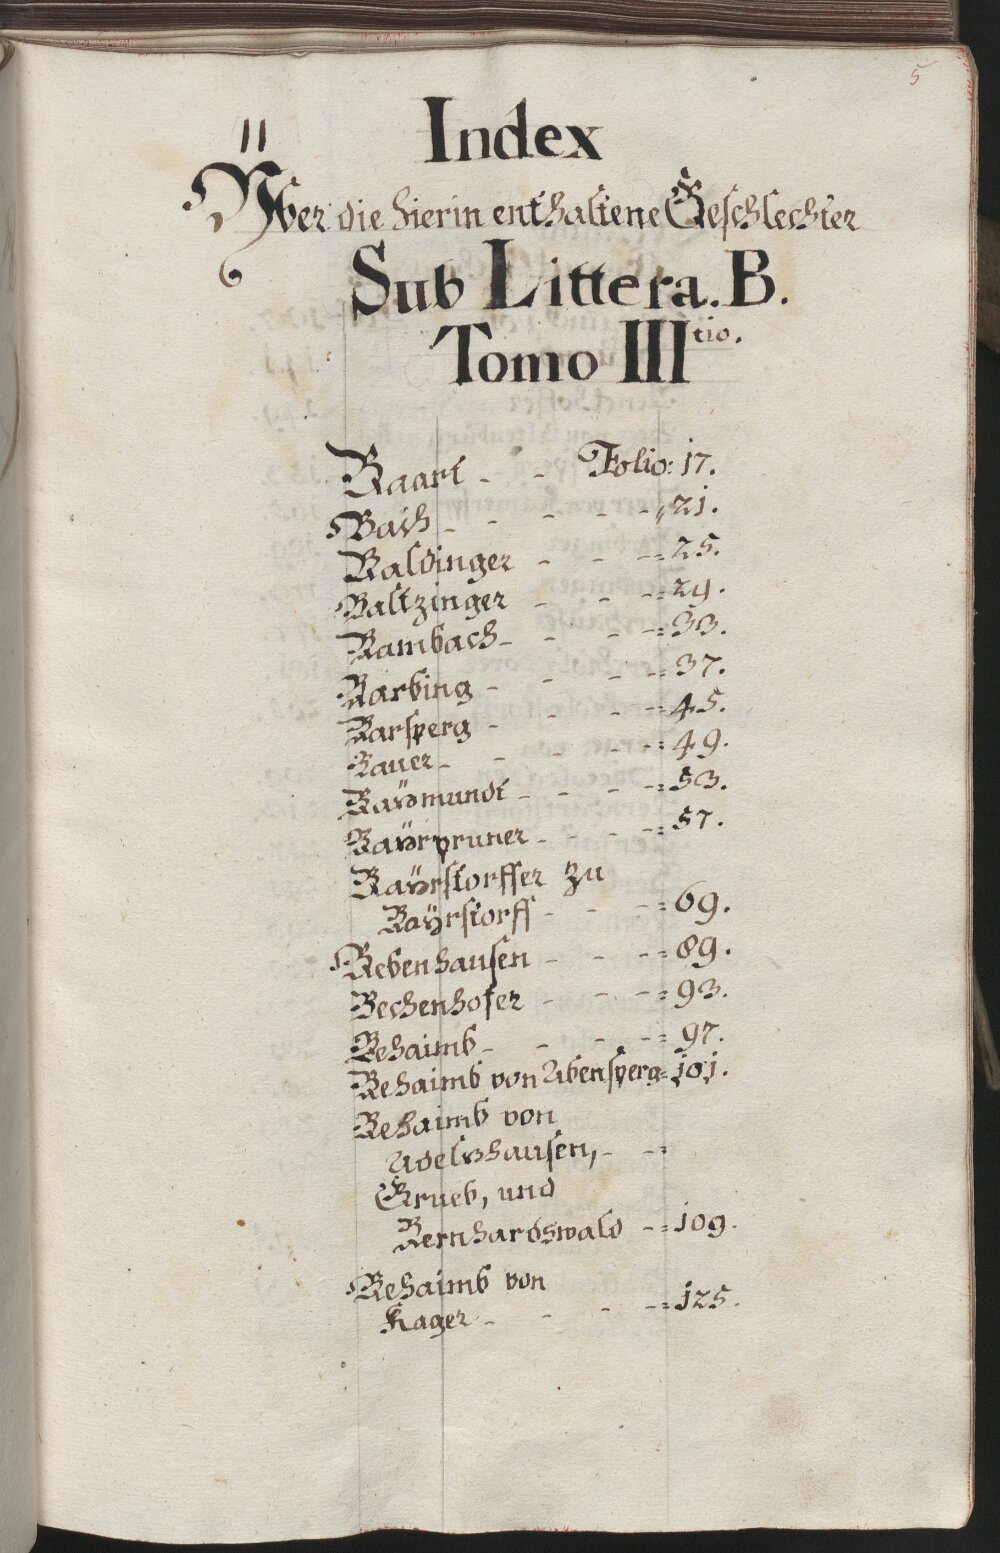 5
Index
Yber die hierin enthaltene Geschlechter
Sub Littera. B.
Tomo III tio.
Baart - - Folio: 17.
Bach - - - - - 21.
Baldinger - - - = 25.
Baltzinger - - - = 29.
Bambach - - - - = 33.
Barbing - - - - = 37.
Barsperg - - - - = 45.
Bauer - - - - - = 49.
Baÿmundt - - - - = 53.
Baÿrpruner - - - - = 57.
Baÿrstorffer zu
Baÿrstorff - - - = 69.
Bebenhausen - - - = 89.
Bechenhofer - - - = 93.
Behaimb - - - - = 97.
Behaimb von Abensperg = 101.
Behaimb von
Adelzhausen, - - =
Grueb, und
Bernhardswald - = 109.
Behaimb von
Kager - - - - = 125.